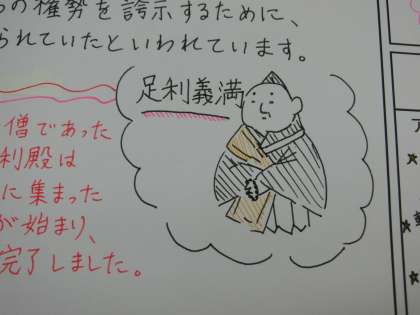 の権勢を誇示するために、
られていたといわれています。
足利義満
僧であった
利殿は
に集まった
が始まり、
完了しました。